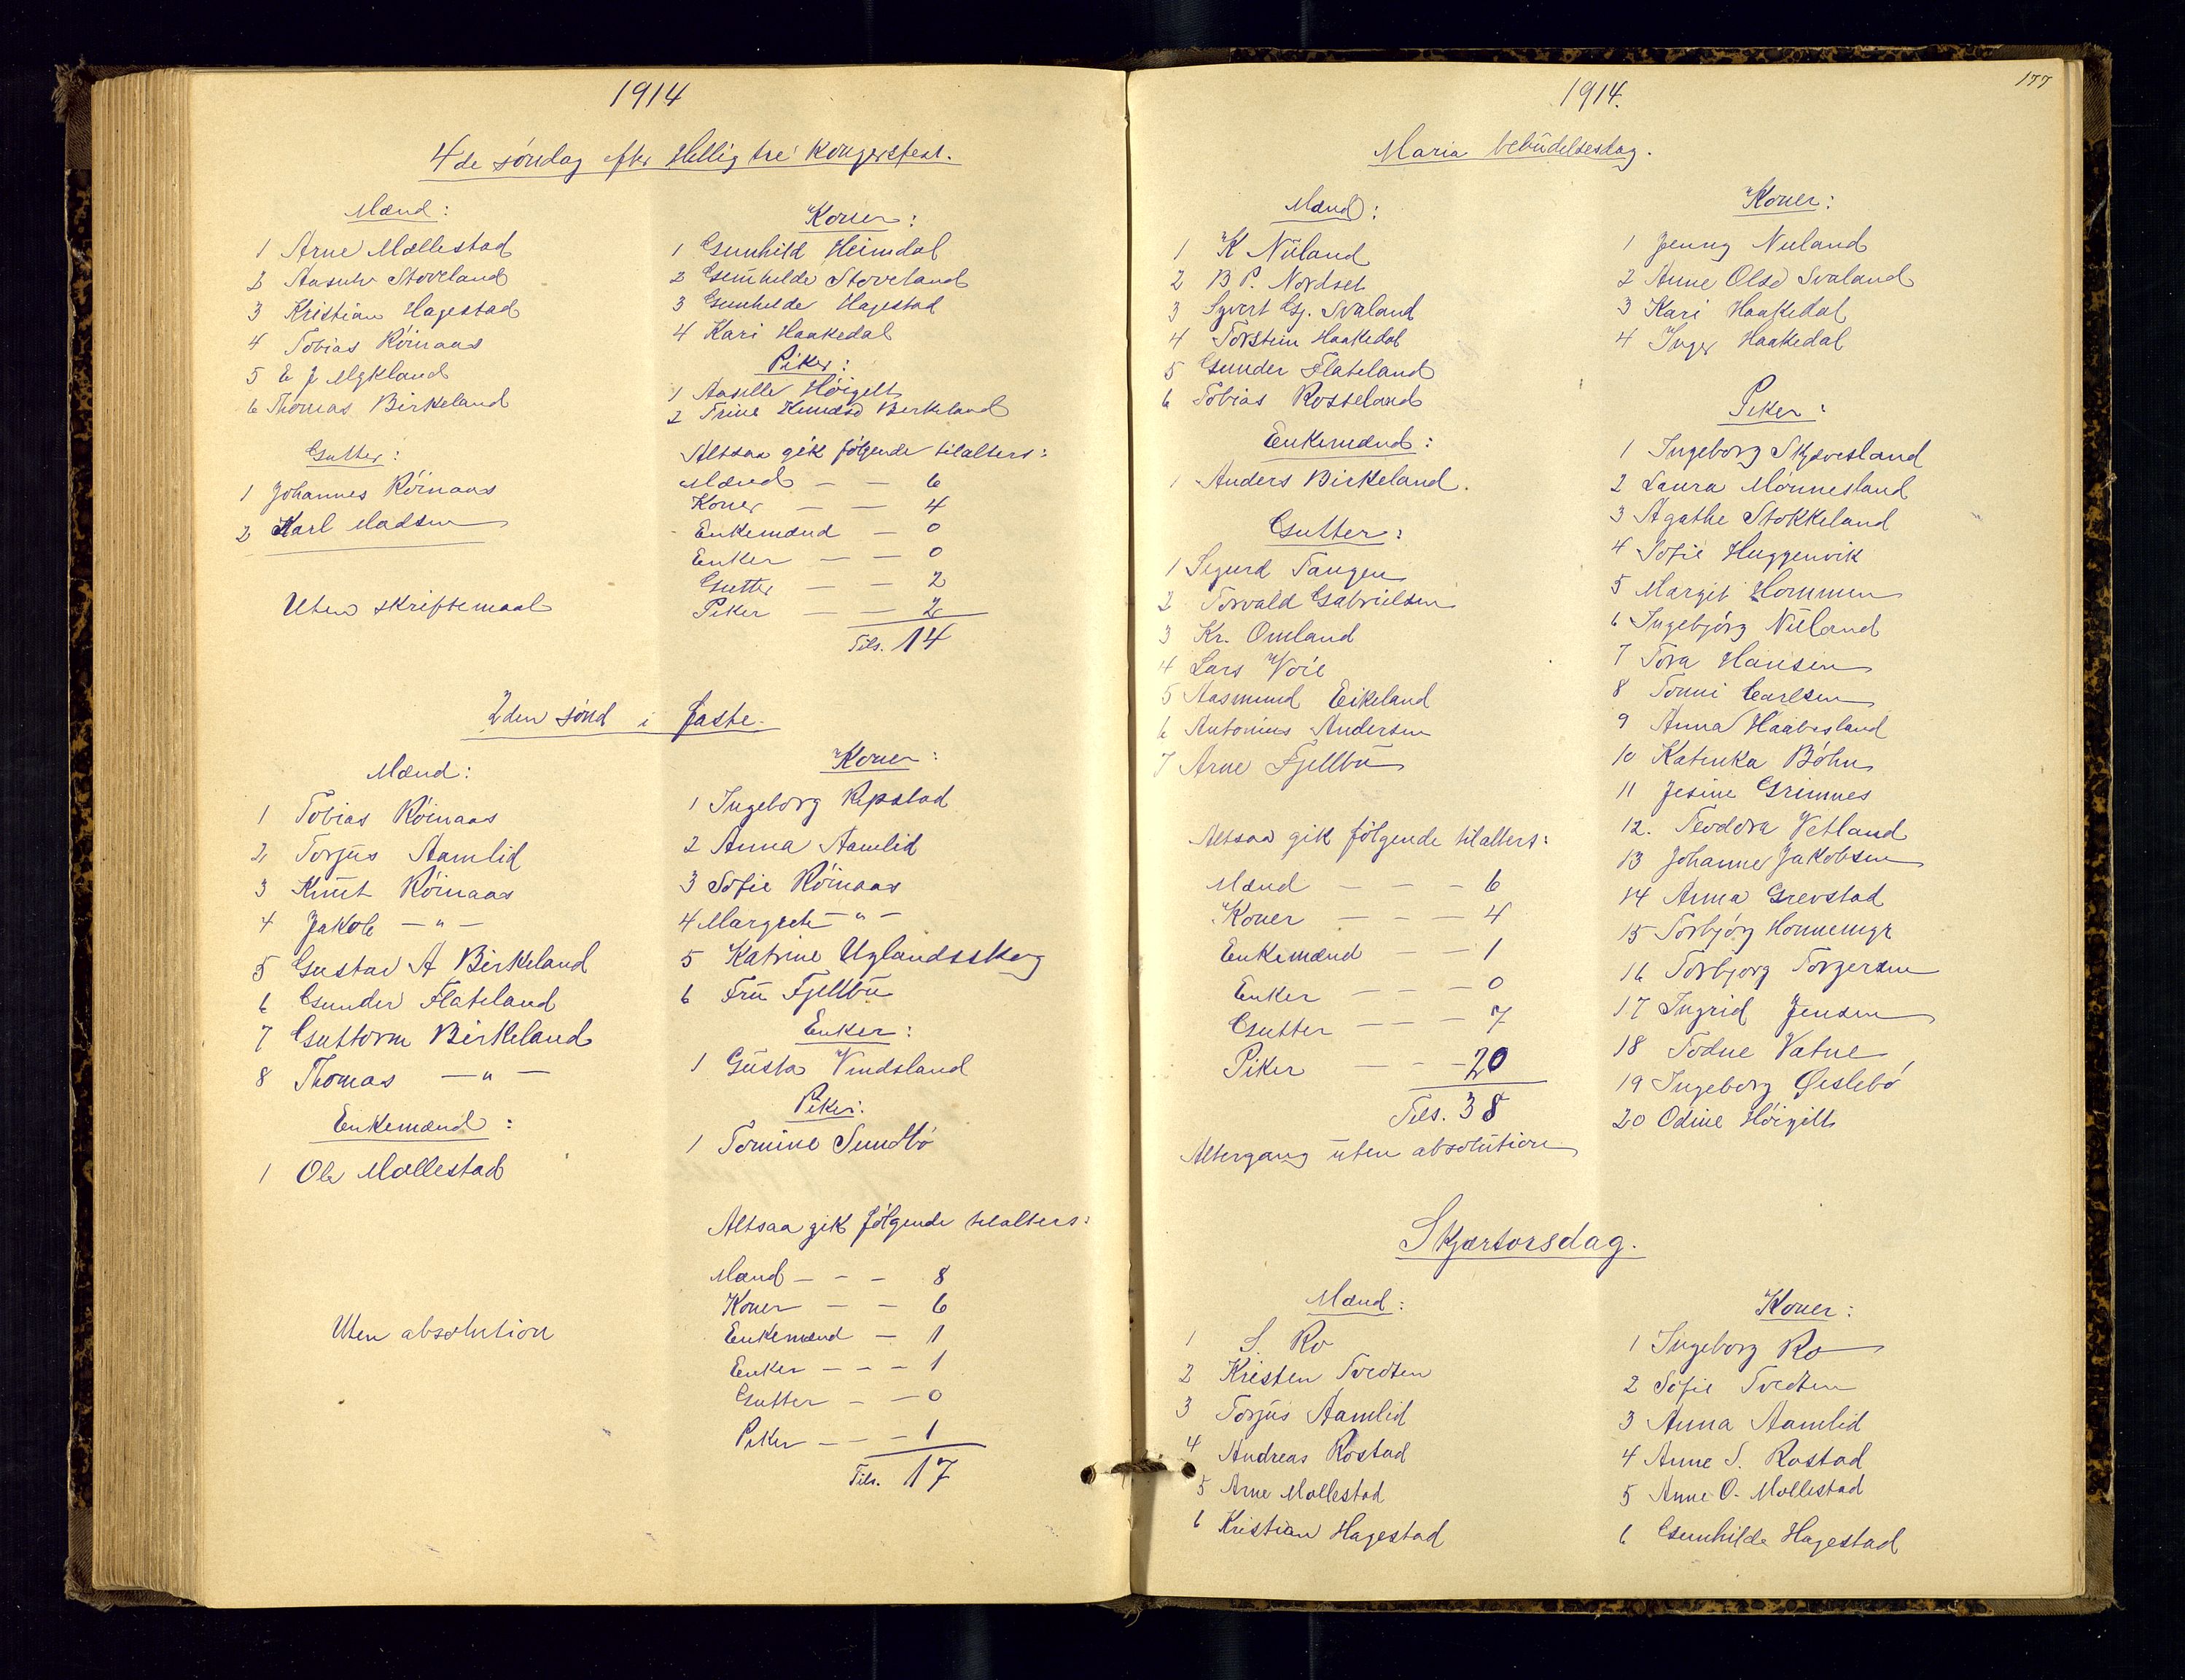 1914
4de söndag efter Hellig tre Kongersfest.
Mænd:
1 Arne Mollestad
2 Aasulv Stoveland
3 Kristian Hagestad
4 Tobias Röinaas
5 E J Mykland
6 Thomas Birkeland
Gutter:
1 Johannes Röinaas
2 Karl Madsen
Uten skriftemaal
Koner:
1 Gunhild Heimdal
2 Gunhilde Stoveland
3 Gunhilde Hagestad
4 Kari Haakedal
Piker:
1 Aaselle Höigilt
2 Trine Knudsd Birkeland
Altsaa gik følgende tilalters:
Mænd — — 6
Koner — — 4
Enkemænd — 0
Enker — — 0
Gutter — — 2
Piker — — 2
Tils. 14
2den sönd i faste.
Mænd:
1 Tobias Röinaas
2 Torjus Aamlid
3 Knut Röinaas
4 Jakob — " —
5 Gustav A Birkeland
6 Gunder Flateland
7 Guttorm Birkeland
8 Thomas — " —
Enkemænd:
1 Ole Mollestad
Uten absolution
Koner:
1 Ingeborg Repstad
2 Anna Aamlid
3 Sofie Röinaas
4 Margrete — " —
5 Katrine Uglandsskog
6 Fru Fjellbu
Enker:
1 Gusta Vindsland
Piker:
1 Tomine Sundbö
Altsaa gik følgende tilalters:
Mænd — — — 8
Koner — — 6
Enkemænd — 1
Enker — — — 1
Gutter — — 0
Piker — — — 1
Tils. 17
177
1914.
Maria bebudelsesdag.
Mænd:
1 K Nuland
2 B P. Nordset
3 Syvert Gj. Svaland
4 Torstein Haakedal
5 Gunder Flateland
6 Tobias Rosseland
Enkemænd:
1 Anders Birkeland.
Gutter:
1 Sigurd Tangen
2 Torvald Gabrielsen
3 Kr. Omland
4 Lars Voie
5 Aasmund Eikeland
6 Antonius Andersen
7 Arne Fjellbu
Altsaa gik følgende tilalters:
Mænd — — — 6
Koner — — — 4
Enkemænd — — 1
Enker — — — 0
Gutter — — — 7
Piker — — — 20
Tils. 38
Altergang uten absolution
Koner:
1 Jenny Nuland
2 Anne Olsd Svaland
3 Kari Haakedal
4 Inger Haakedal
Piker:
1 Ingeborg Skjævesland
2 Laura Monnesland
3 Agathe Stokkeland
4 Sofie Huggenvik
5 Margit Hommen
6 Ingebjörg Nuland
7 Tora Hansen
8 Tonni Carlsen
9 Anna Haabesland
10 Katinka Böhn
11 Jesine Grimnes
12. Teodora Vetland
13 Johanne Jakobsen
14 Anna Grevstad
15 Torbjörg Honnemyr
16 Torbjorg Torgersen
17 Ingrid Jensen
18 Todne Vatne
19 Ingeborg Øislebö
20 Odine Höigilt
Skjærtorsdag.
Mænd:
1 S. Ro
2 Kristen Tvedten
3 Torjus Aamlid
4 Andreas Rostad
5 Arne Mollestad
6 Kristian Hagestad
Koner:
1 Ingeborg Ro
2 Sofie Tvedten
3 Anna Aamlid
4 Anne S. Rostad
5 Anne O. Mollestad
6 Gunhilde Hagestad